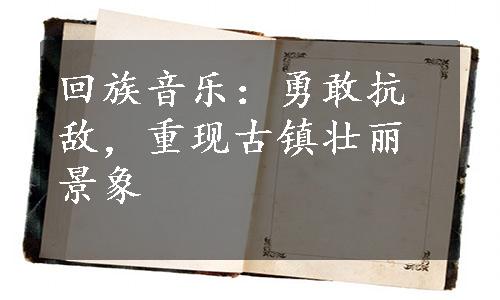 回族音乐：勇敢抗
敌，重现古镇壮丽
景象